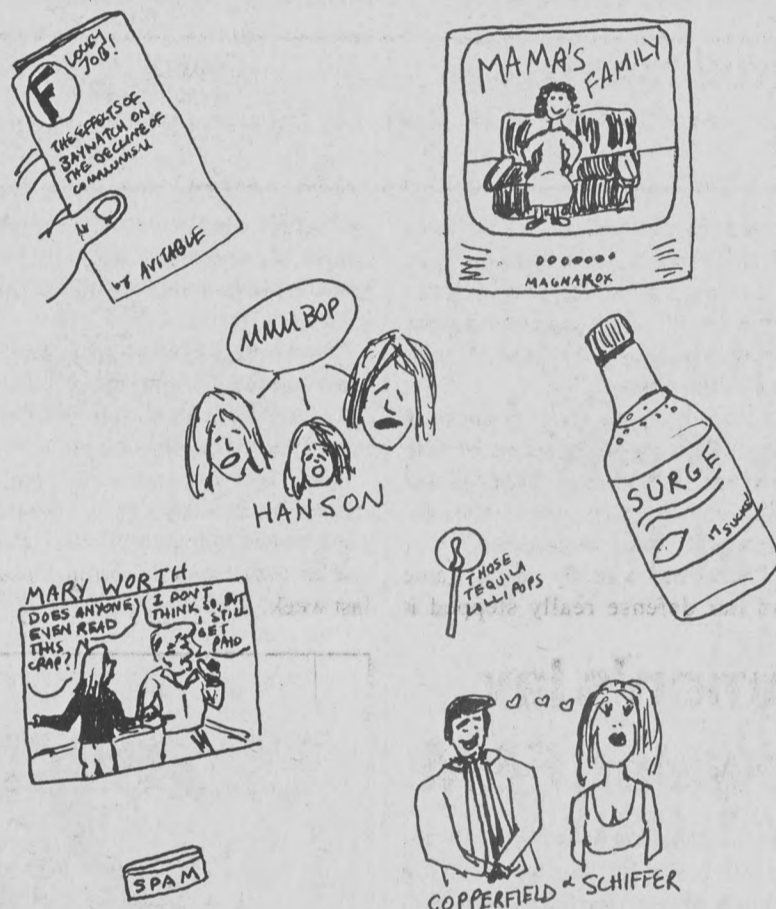 LOUSY
JOB!
F
THE EFFECTS OF
BAYWATCH ON
THE DECLINE OF
COMMUNISM
BY AVITABLE
MAMA'S
FAMILY
MAGNAROX
MMMBOP
HANSON
SURGE
IT SUCKS!
THOSE
TEQUILA
LOLLIPOPS
MARY WORTH
DOES ANYONE
EVEN READ
THIS
CRAP?
I DON'T
THINK SO, BUT
I STILL
GET
PAID
SPAM
COPPERFIELD & SCHIFFER
last week.